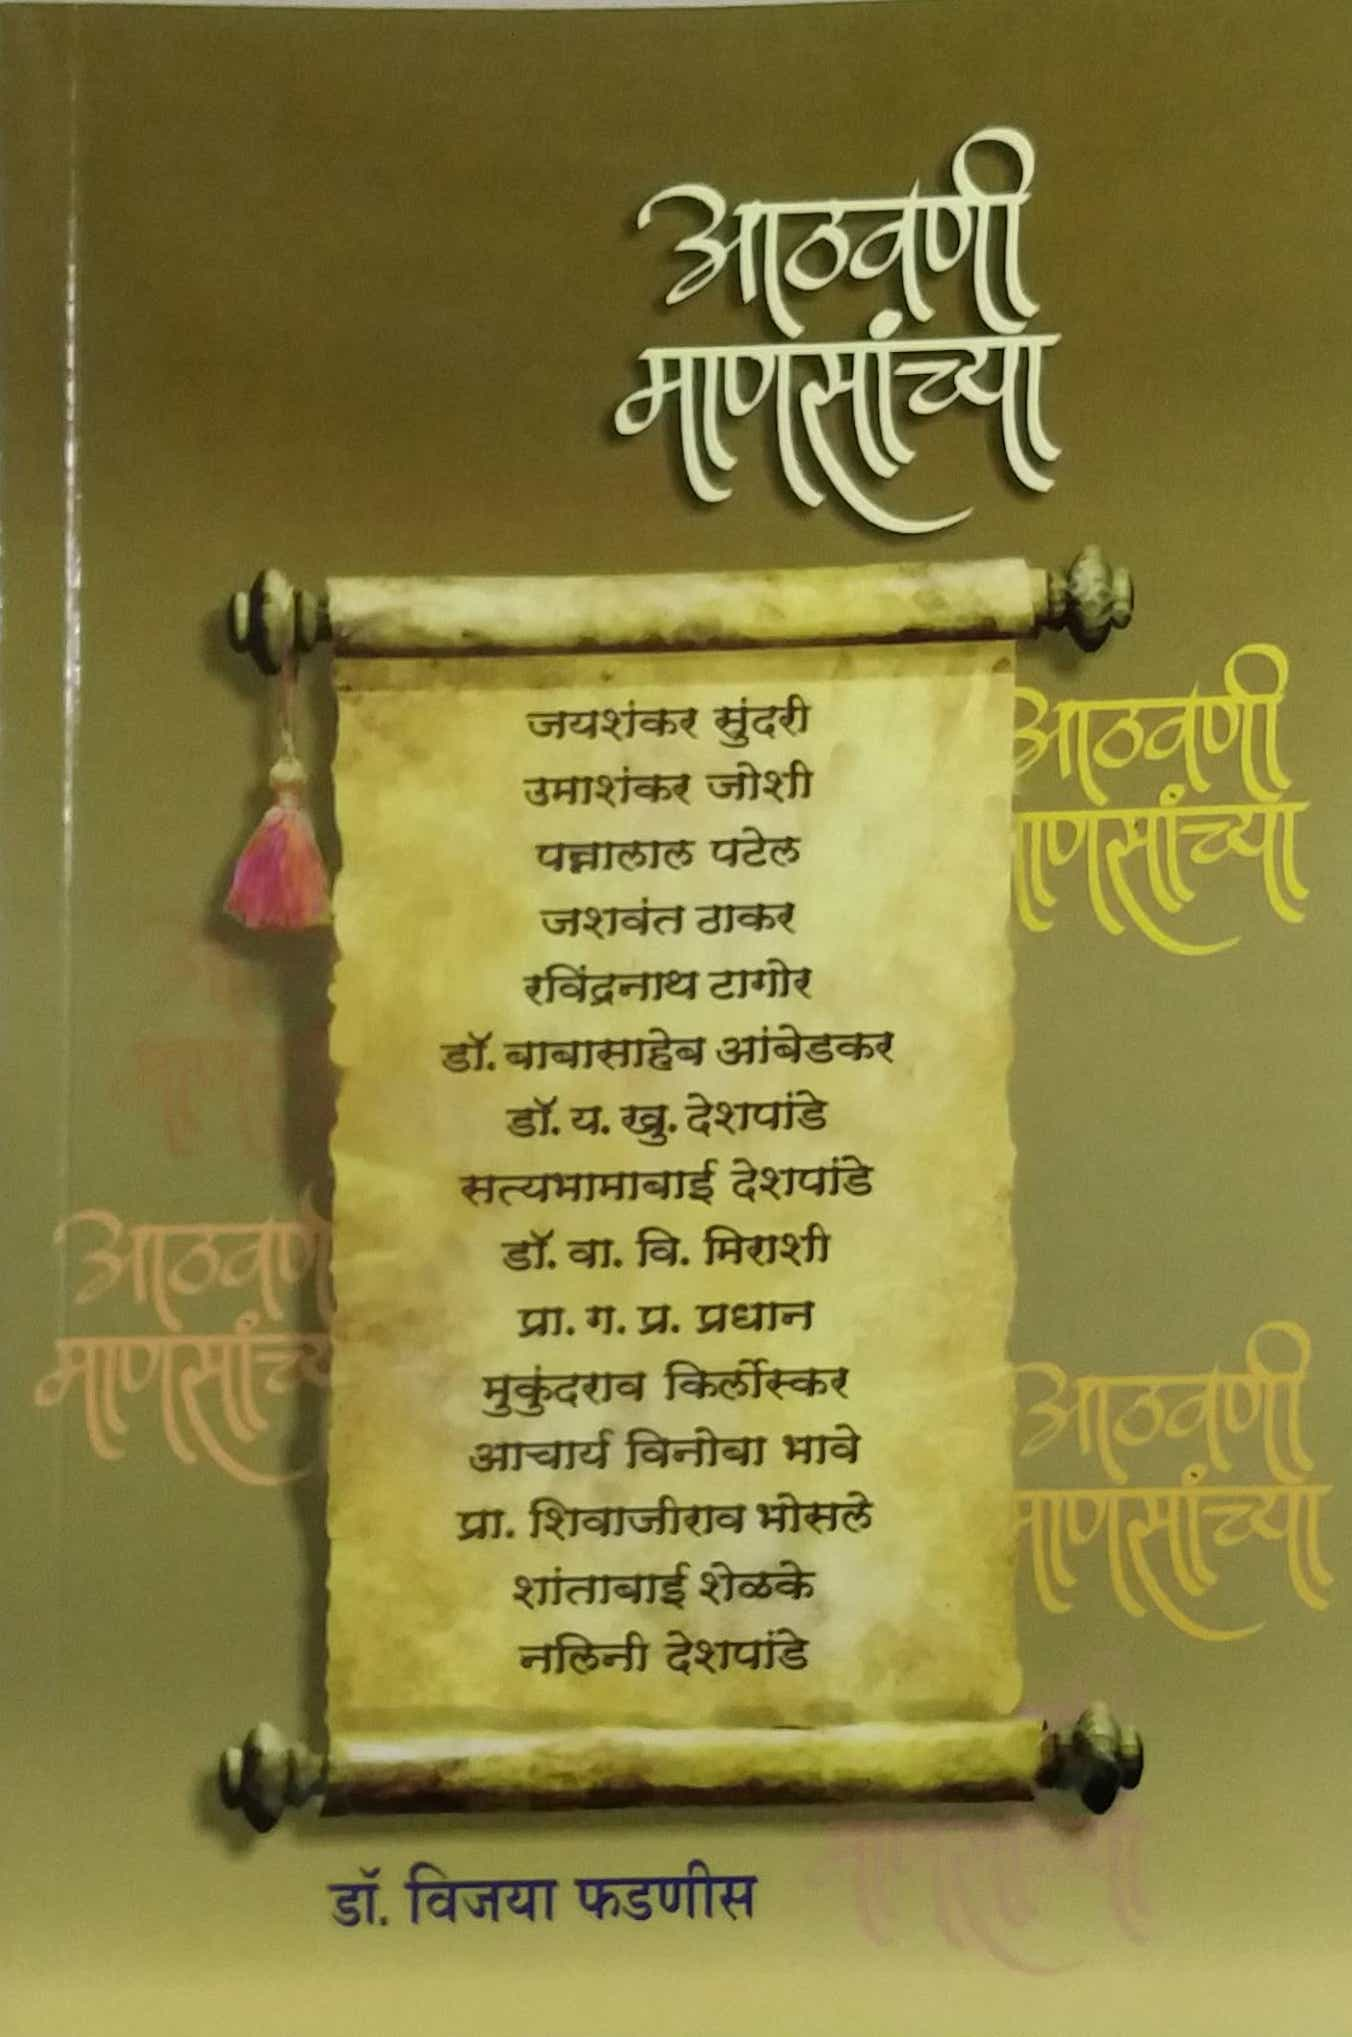 आठवणी
माणसांच्या
जयशंकर सुंदरी
उमाशंकर जोशी
पन्नालाल पटेल
जशवंत ठाकर
रविंद्रनाथ टागोर
डॉ. बाबासाहेब आंबेडकर
डॉ. य. खु. देशपांडे
सत्यभामाबाई देशपांडे
डॉ. वा. वि. मिराशी
प्रा. ग. प्र. प्रधान
मुकुंदराव किर्लोस्कर
आचार्य विनोबा भावे
प्रा. शिवाजीराव भोसले
शांताबाई शेळके
नलिनी देशपांडे
आठवणी
माणसांच्या
आठवणी
माणसांच्या
आठवणी
माणसांच्या
डॉ. विजया फडणीस